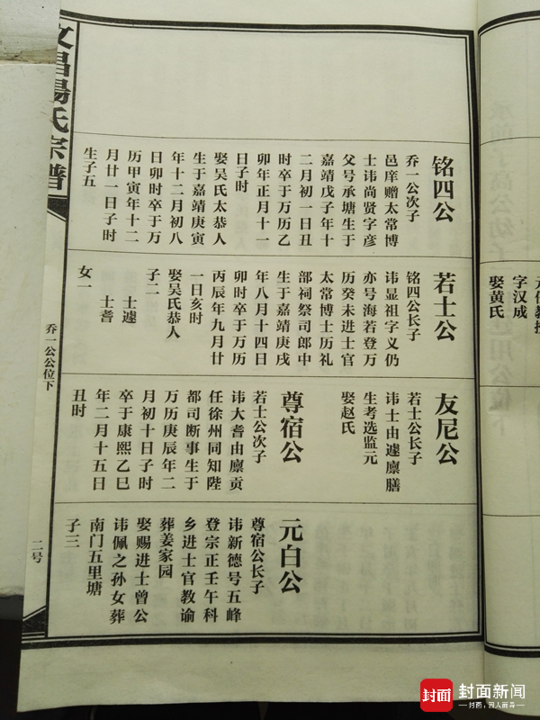 文昌汤氏宗谱
乔一公公位下
二号
铭四公
乔一公次子
邑庠赠太常博
士讳尚贤字彦
父号承塘生于
嘉靖戊子年十
二月初一日丑
时卒于万历乙
卯年正月十一
日子时
娶吴氏太恭人
生于嘉靖庚寅
年十二月初八
日卯时卒于万
历甲寅年十二
月廿一日子时
生子五
若士公
铭四公长子
讳显祖字义仍
亦号海若登万
历癸未进士官
太常博士历礼
部祠祭司郎中
生于嘉靖庚戌
年八月十四日
卯时卒于万历
丙辰年九月廿
一日亥时
娶吴氏恭人
子二
士遽
士耆
女一
友尼公
若士公长子
讳士由遽廪膳
生考选监元
娶赵氏
尊宿公
若士公次子
讳大耆由廪贡
任徐州同知陛
都司断事生于
万历庚辰年二
月初十日子时
卒于康熙乙巳
年二月十五日
丑时
元白公
尊宿公长子
讳新德号五峰
登宗正壬午科
乡进士官教谕
葬姜家园
娶赐进士曾公
讳佩之孙女葬
南门五里塘
子三
字汉成
娶黄氏
封面
封面新闻
封面,因人而异